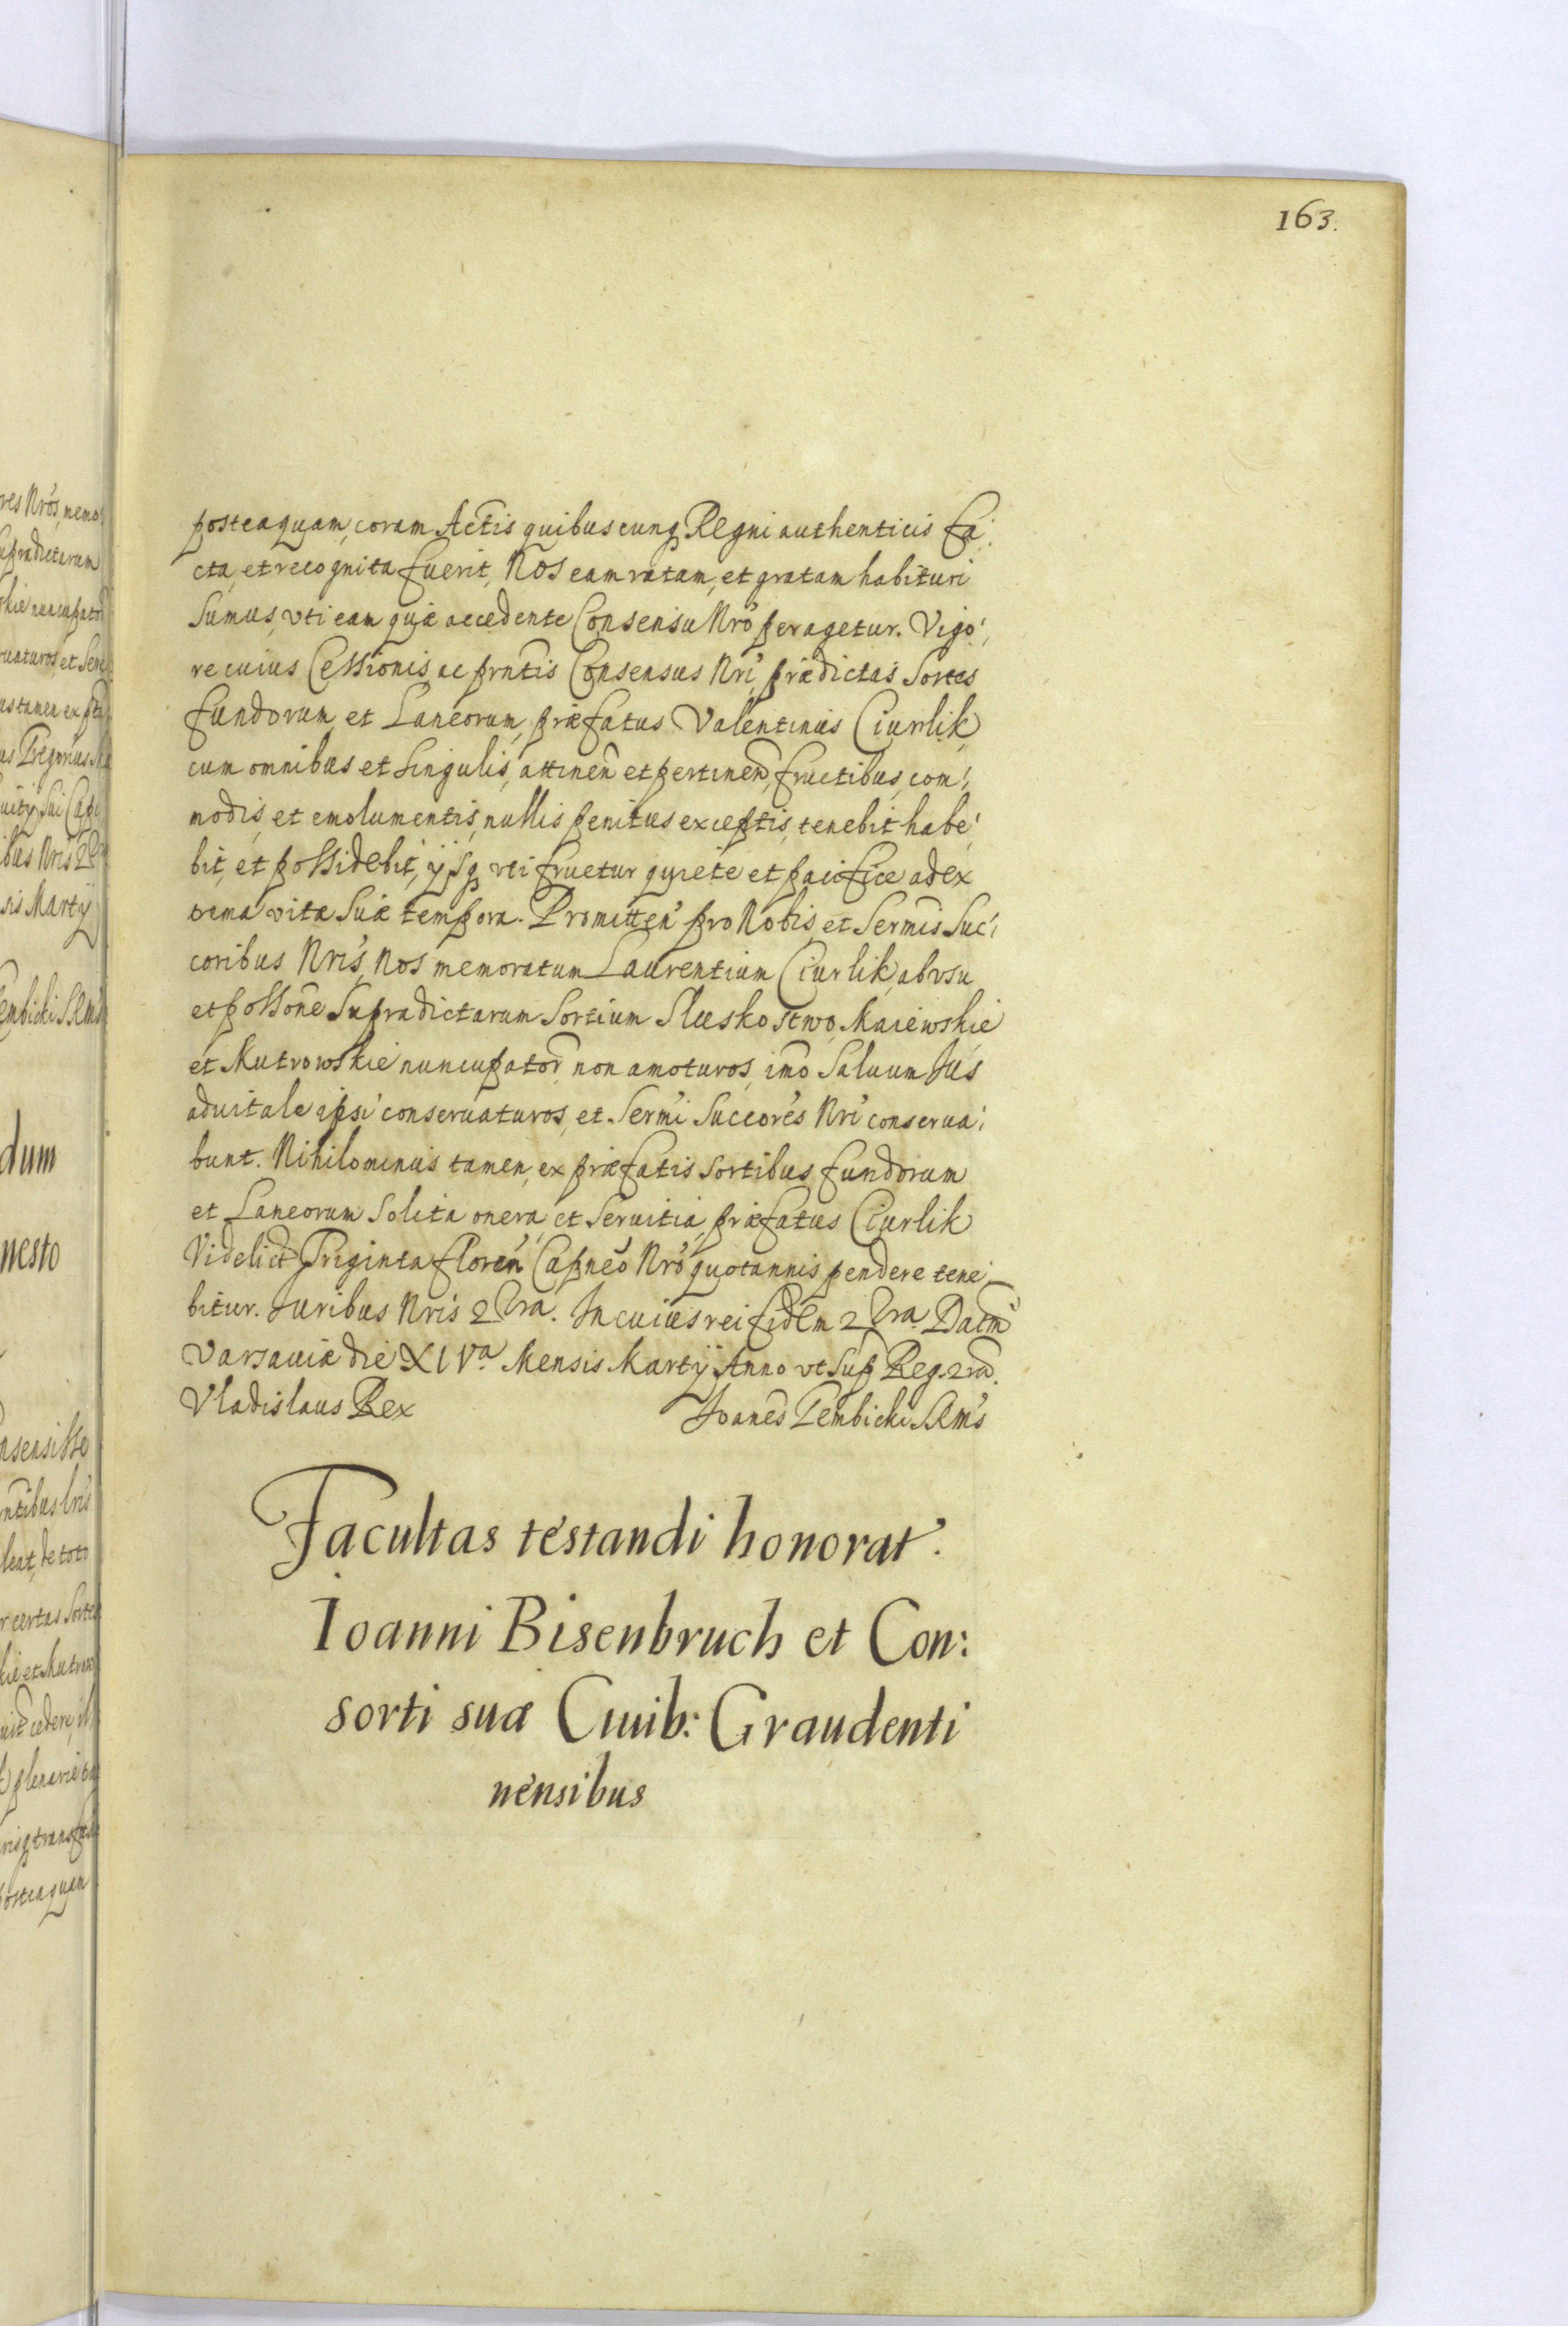 163.
posteaquam, coram Actis quibuscunq Regni authenticis fa:
cta, et recognita fuerit, Nos eam ratam, et gratam habituri
sumus, vti eam quæ accedente Consensu Nro peragetur. Vigo:
re cuius Cessionis, ac prntis Consensus Nri, prædictas Sortes
fundorum et Laneorum, præfatus Valentinus Ciurlik,
cum omnibus et singulis, attinen et pertinen, fructibus, com:
modis, et emolumentis, nullis penitus exceptis, tenebit habe:
bit, et possidebit, ijsq vti fruetur quiete et pacifice ad ex
trema vitæ suæ tempora. Promitten pro Nobis, et Sermis Suc:
coribus Nris, Nos memoratum Laurentium Ciurlik, ab vsu
et possone supradictarum Sortium Sluskostwo, Maiewskie
et Mutrowskie nuncupator, non amoturos, imo saluum Jus
aduitale ipsi conseruaturos, et Sermi Succores Nri conserua:
bunt. Nihilominus tamen, ex præfatis Sortibus fundorum
et Laneorum solita onera, et seruitia, præfatus Ciurlik
Videlict Triginta floren Capneo Nro quotannis pendere tene:
bitur. Juribus Nris 2 Rra. In cuius rei fidem 2 Rra. Datm
Varsauiæ die XIVa Mensis Martij Anno vt sup Reg. 2rd.
Vladislaus Rex Joanes Gembicki SRMs
Facultas testandi honorat.
Ioanni Bisenbruch et Con:
sorti suæ Ciuib: Graudenti
nensibus
res Nros, memo
supradictarum
skie nuncupator
ruaturos, et Ser
us tamen ex
bus Nris
sis Martij
embicki SRMs
dum
nesto
nsensisse
ntibus lris
leat, de toto
r certas Sortes
kie et Mutrow
cedere
plenarie
posteaquam